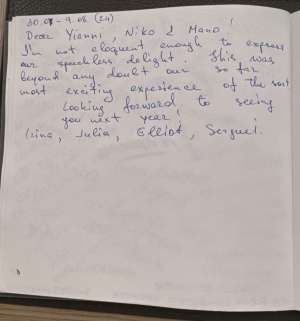 30.07 - 9.08 (24)
Dear Yianni, Niko & Mano!
I'm not eloquent enough to express
our speechless delight. This was
beyond any doubt our so far
most exciting experience of the sort
Looking forward to seeing
you next year!
Irina, Julia, Elliot, Serguei.